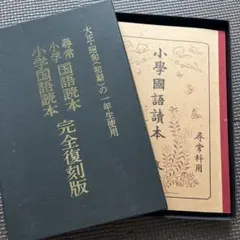 大正・昭和(初期)の一年生使用
尋常
小学国語読本
小学国語読本
完全復刻版
小學國語讀本
尋常科用